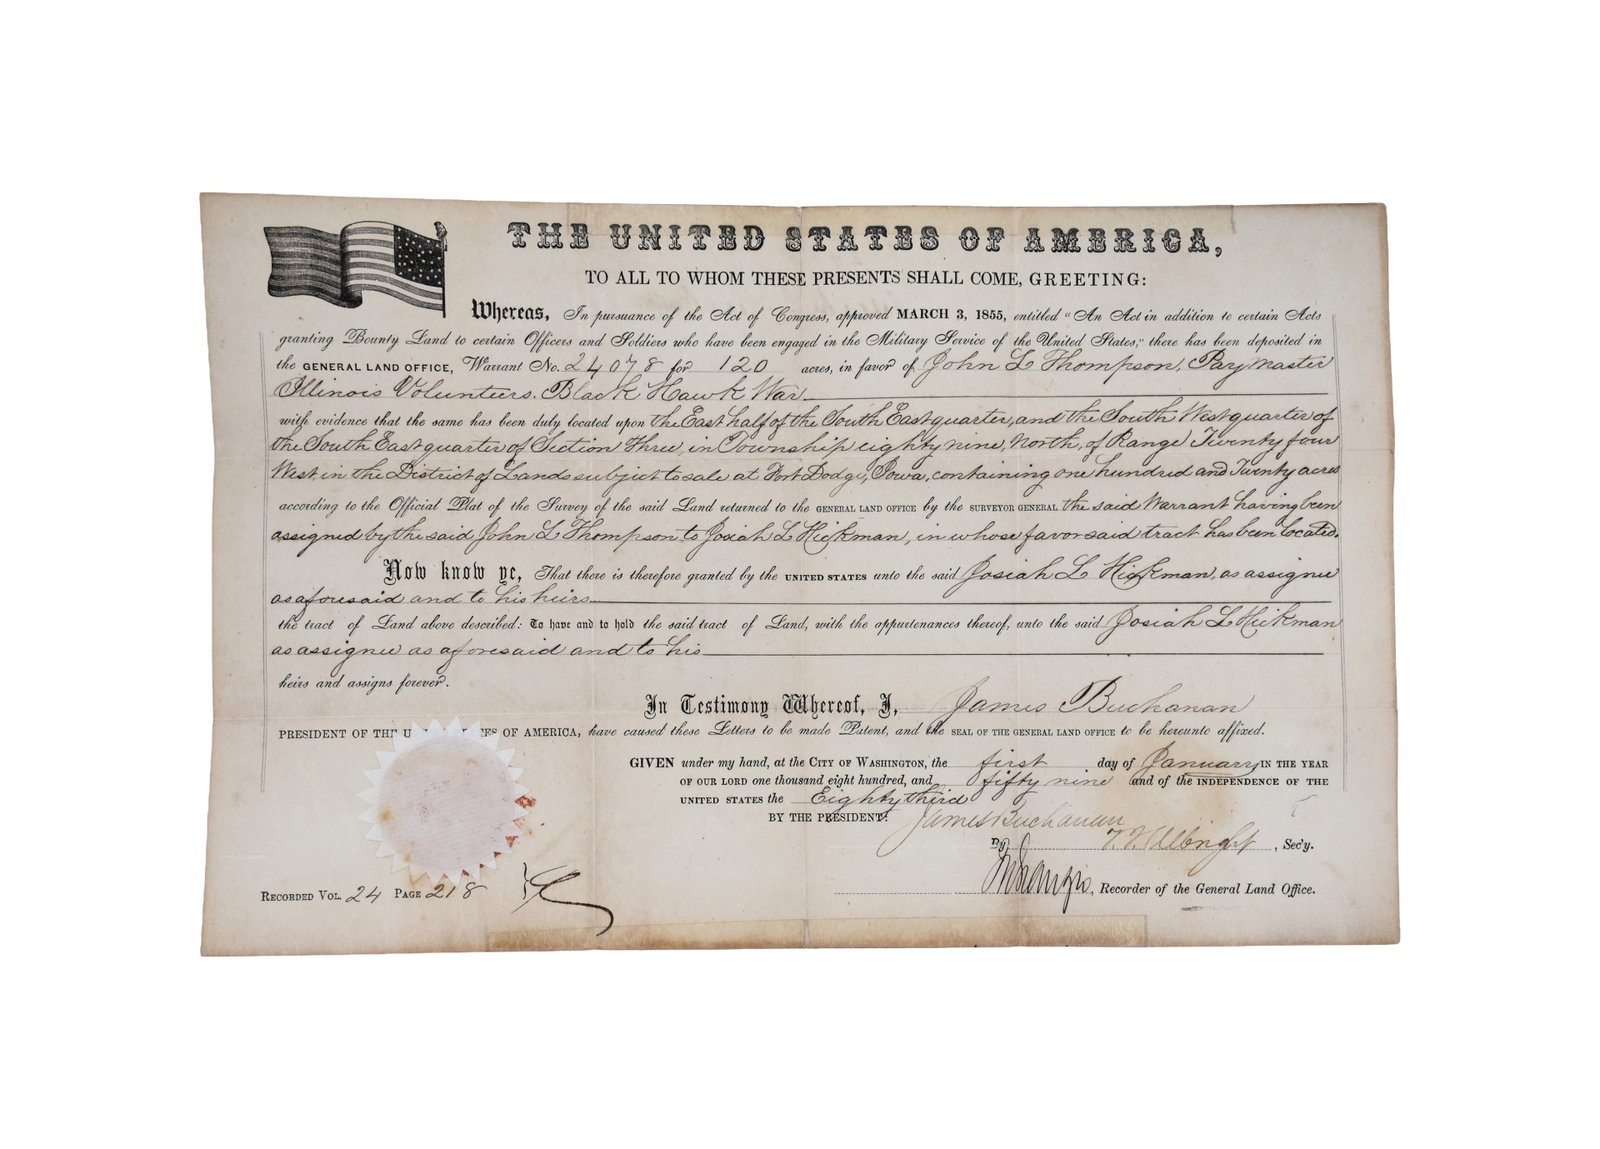 THE UNITED STATES OF AMERICA,
TO ALL TO WHOM THESE PRESENTS SHALL COME, GREETING:
Whereas, In pursuance of the Act of Congress, approved MARCH 3, 1855, entitled "An Act in addition to certain Acts
granting Bounty Land to certain Officers and Soldiers who have been engaged in the Military Service of the United States," there has been deposited in
the GENERAL LAND OFFICE, Warrant No. 24078 for 120 acres, in favor of John L Thompson, Paymaster
Illinois Volunteers. Black Hawk War
with evidence that the same has been duly located upon the East half of the South East quarter, and the South West quarter of
the South East quarter of Section Three, in Township eighty nine, North, of Range Twenty four
West, in the District of Lands subject to sale at Fort Dodge, Iowa, containing one hundred and Twenty acres
according to the Official Plat of the Survey of the said Land returned to the GENERAL LAND OFFICE by the SURVEYOR GENERAL the said Warrant having been
assigned by the said John L Thompson to Josiah L Hickman, in whose favor said tract has been located.
Now know ye, That there is therefore granted by the UNITED STATES unto the said Josiah L Hickman, as assignee
as aforesaid and to his heirs
the tract of Land above described: To have and to hold the said tract of Land, with the appurtenances thereof, unto the said Josiah L Hickman
as assignee as aforesaid and to his
heirs and assigns forever.
In Testimony Whereof, I, James Buchanan
PRESIDENT OF THE U ES OF AMERICA, have caused these Letters to be made Patent, and the SEAL OF THE GENERAL LAND OFFICE to be hereunto affixed.
GIVEN under my hand, at the CITY OF WASHINGTON, the first day of January IN THE YEAR
OF OUR LORD one thousand eight hundred, and fifty nine and of the INDEPENDENCE OF THE
UNITED STATES the Eighty third
BY THE PRESIDENT: James Buchanan
By Albright, Sec'y.
Recorder of the General Land Office.
RECORDED VOL. 24 PAGE 218